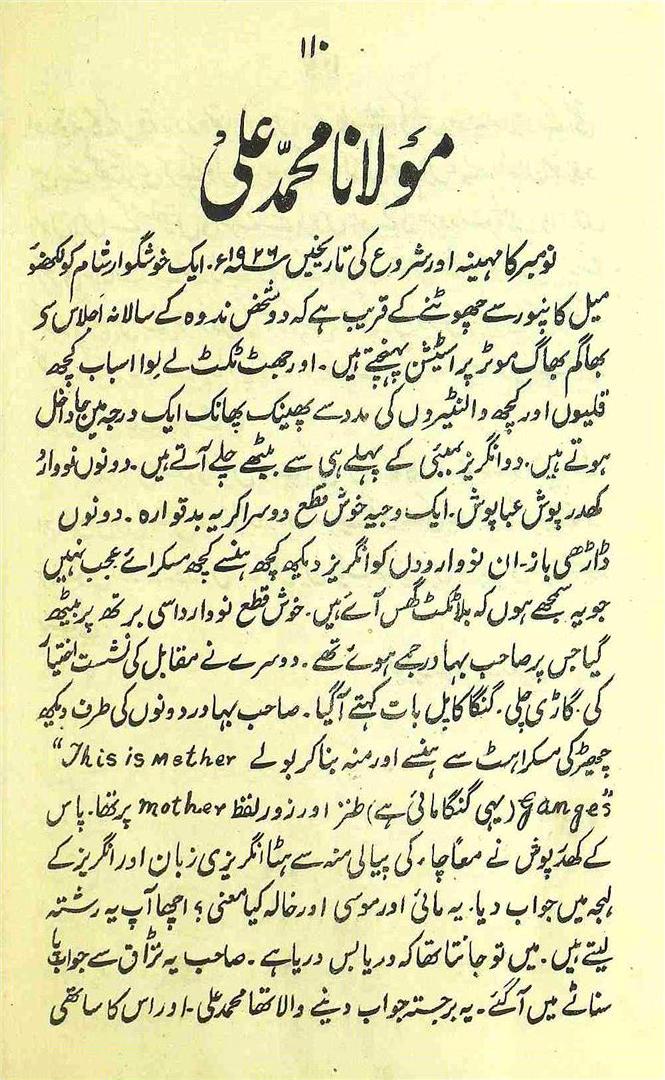 ۱۱۰
مولانا محمد علیؒ
نومبر کا مہینہ اور شروع کی تاریخیں ۱۹۲۶ء۔ ایک خوشگوار شام کو لکھنؤ
میل کانپور سے چھوٹنے کے قریب ہے کہ دو شخص ندوہ کے سالانہ اجلاس سے
بھاگم بھاگ موٹر پر اسٹیشن پہنچتے ہیں۔ اور جھٹ ٹکٹ لے لوا اسباب کچھ
قلیوں اور کچھ والنٹیروں کی مدد سے پھینک پھانک ایک درجہ میں جا داخل
ہوتے ہیں۔ دو انگریز بمبئی کے پہلے ہی سے بیٹھے چلے آتے ہیں۔ دونوں نووارد
کھدر پوش عبا پوش۔ ایک وجیہ خوش قطع دوسرا کریہ بدقوارہ۔ دونوں
ڈاڑھی باز۔ ان نوواردوں کو انگریز دیکھ کچھ ہنسے کچھ مسکرائے عجب نہیں
جو یہ سمجھے ہوں کہ بلا ٹکٹ گھس آئے ہیں۔ خوش قطع نووارد اسی برتھ پر بیٹھ
گیا جس پر صاحب بہادر جمے ہوئے تھے۔ دوسرے نے مقابل کی نشست اختیار
کی۔ گاڑی چلی۔ گنگا کا پل بات کہتے آگیا۔ صاحب بہادر دونوں کی طرف دیکھ
چھیڑ کی مسکراہٹ سے ہنسے اور منہ بنا کر بولے "This is Mother
Ganges" (یہی گنگا مائی ہے) طنز اور زور لفظ mother پر تھا۔ پاس
کے کھدر پوش نے معاً چاء کی پیالی منہ سے ہٹا انگریزی زبان اور انگریز کے
لہجہ میں جواب دیا۔ یہ مائی اور موسی اور خالہ کیا معنی؟ اچھا آپ یہ رشتہ
لیتے ہیں۔ میں تو جانتا تھا کہ دریا بس دریا ہے۔ صاحب یہ تڑاق سے جواب پا
سناٹے میں آگئے۔ یہ برجستہ جواب دینے والا تھا محمد علی۔ اور اس کا ساتھی